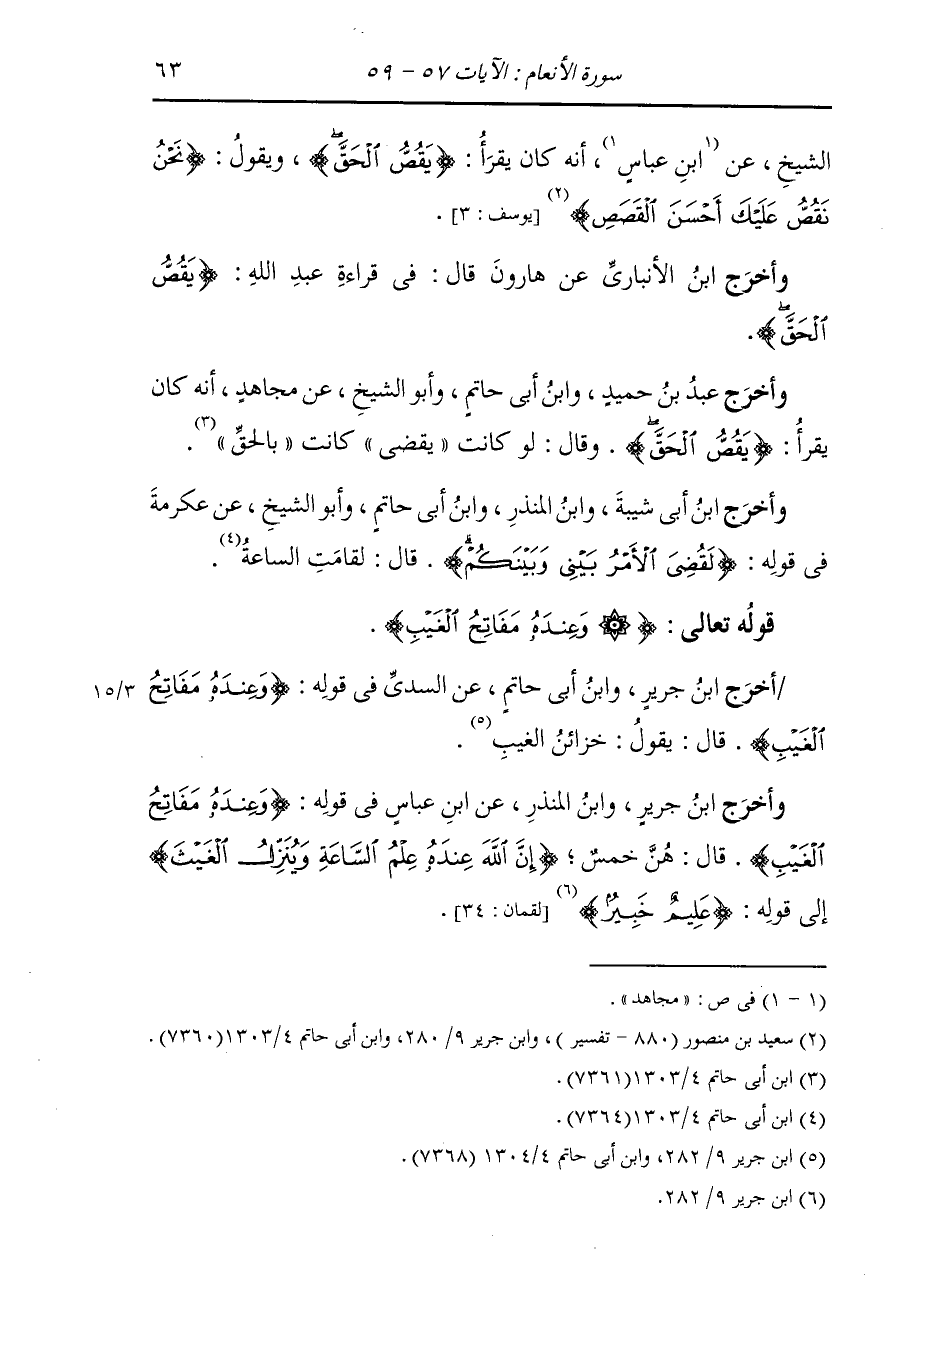 سورة الأنعام : الآيات ٥٧ - ٥٩ ٦٣
الشيخِ ، عن (١ابنِ عباسٍ١)، أنه كان يقرَأُ : ﴿يَقُصُّ ٱلۡحَقَّۖ﴾ ، ويقولُ : ﴿نَحۡنُ
نَقُصُّ عَلَيۡكَ أَحۡسَنَ ٱلۡقَصَصِ﴾(٢) [يوسف : ٣] .
وأخرَج ابنُ الأنبارىِّ عن هارونَ قال : فى قراءةِ عبدِ اللهِ : ﴿يَقُصُّ
ٱلۡحَقَّۖ﴾.
وأخرَج عبدُ بنُ حميدٍ ، وابنُ أبى حاتمٍ ، وأبو الشيخِ ، عن مجاهدٍ ، أنه كان
يقرأُ : ﴿يَقُصُّ ٱلۡحَقَّۖ﴾ . وقال : لو كانت « يقضى » كانت « بالحقِّ »(٣).
وأخرَج ابنُ أبى شيبةَ ، وابنُ المنذرِ ، وابنُ أبى حاتمٍ ، وأبو الشيخِ ، عن عكرمةَ
فى قولِه : ﴿لَقُضِىَ ٱلۡأَمۡرُ بَيۡنِى وَبَيۡنَكُمۡۗ﴾ . قال : لقامَتِ الساعةُ(٤) .
قولُه تعالى : ﴿۞ وَعِندَهُۥ مَفَاتِحُ ٱلۡغَيۡبِ﴾ .
/أخرَج ابنُ جريرٍ ، وابنُ أبى حاتمٍ ، عن السدىِّ فى قولِه : ﴿وَعِندَهُۥ مَفَاتِحُ ١٥/٣
ٱلۡغَيۡبِ﴾ . قال : يقولُ : خزائنُ الغيبِ(٥) .
وأخرَج ابنُ جريرٍ ، وابنُ المنذرِ ، عن ابنِ عباسٍ فى قولِه : ﴿وَعِندَهُۥ مَفَاتِحُ
ٱلۡغَيۡبِ﴾ . قال : هُنَّ خمسٌ ؛ ﴿إِنَّ ٱللَّهَ عِندَهُۥ عِلۡمُ ٱلسَّاعَةِ وَيُنَزِّلُ ٱلۡغَيۡثَ﴾
إلى قولِه : ﴿عَلِيمٌ خَبِيرٌۢ﴾(٦) [لقمان : ٣٤] .
(١ - ١) فى ص : « مجاهد » .
(٢) سعيد بن منصور (٨٨٠ - تفسير ) ، وابن جرير ٩/ ٢٨٠، وابن أبى حاتم ١٣٠٣/٤(٧٣٦٠).
(٣) ابن أبى حاتم ١٣٠٣/٤(٧٣٦١).
(٤) ابن أبى حاتم ١٣٠٣/٤(٧٣٦٤).
(٥) ابن جرير ٩/ ٢٨٢، وابن أبى حاتم ١٣٠٤/٤ (٧٣٦٨).
(٦) ابن جرير ٩/ ٢٨٢.